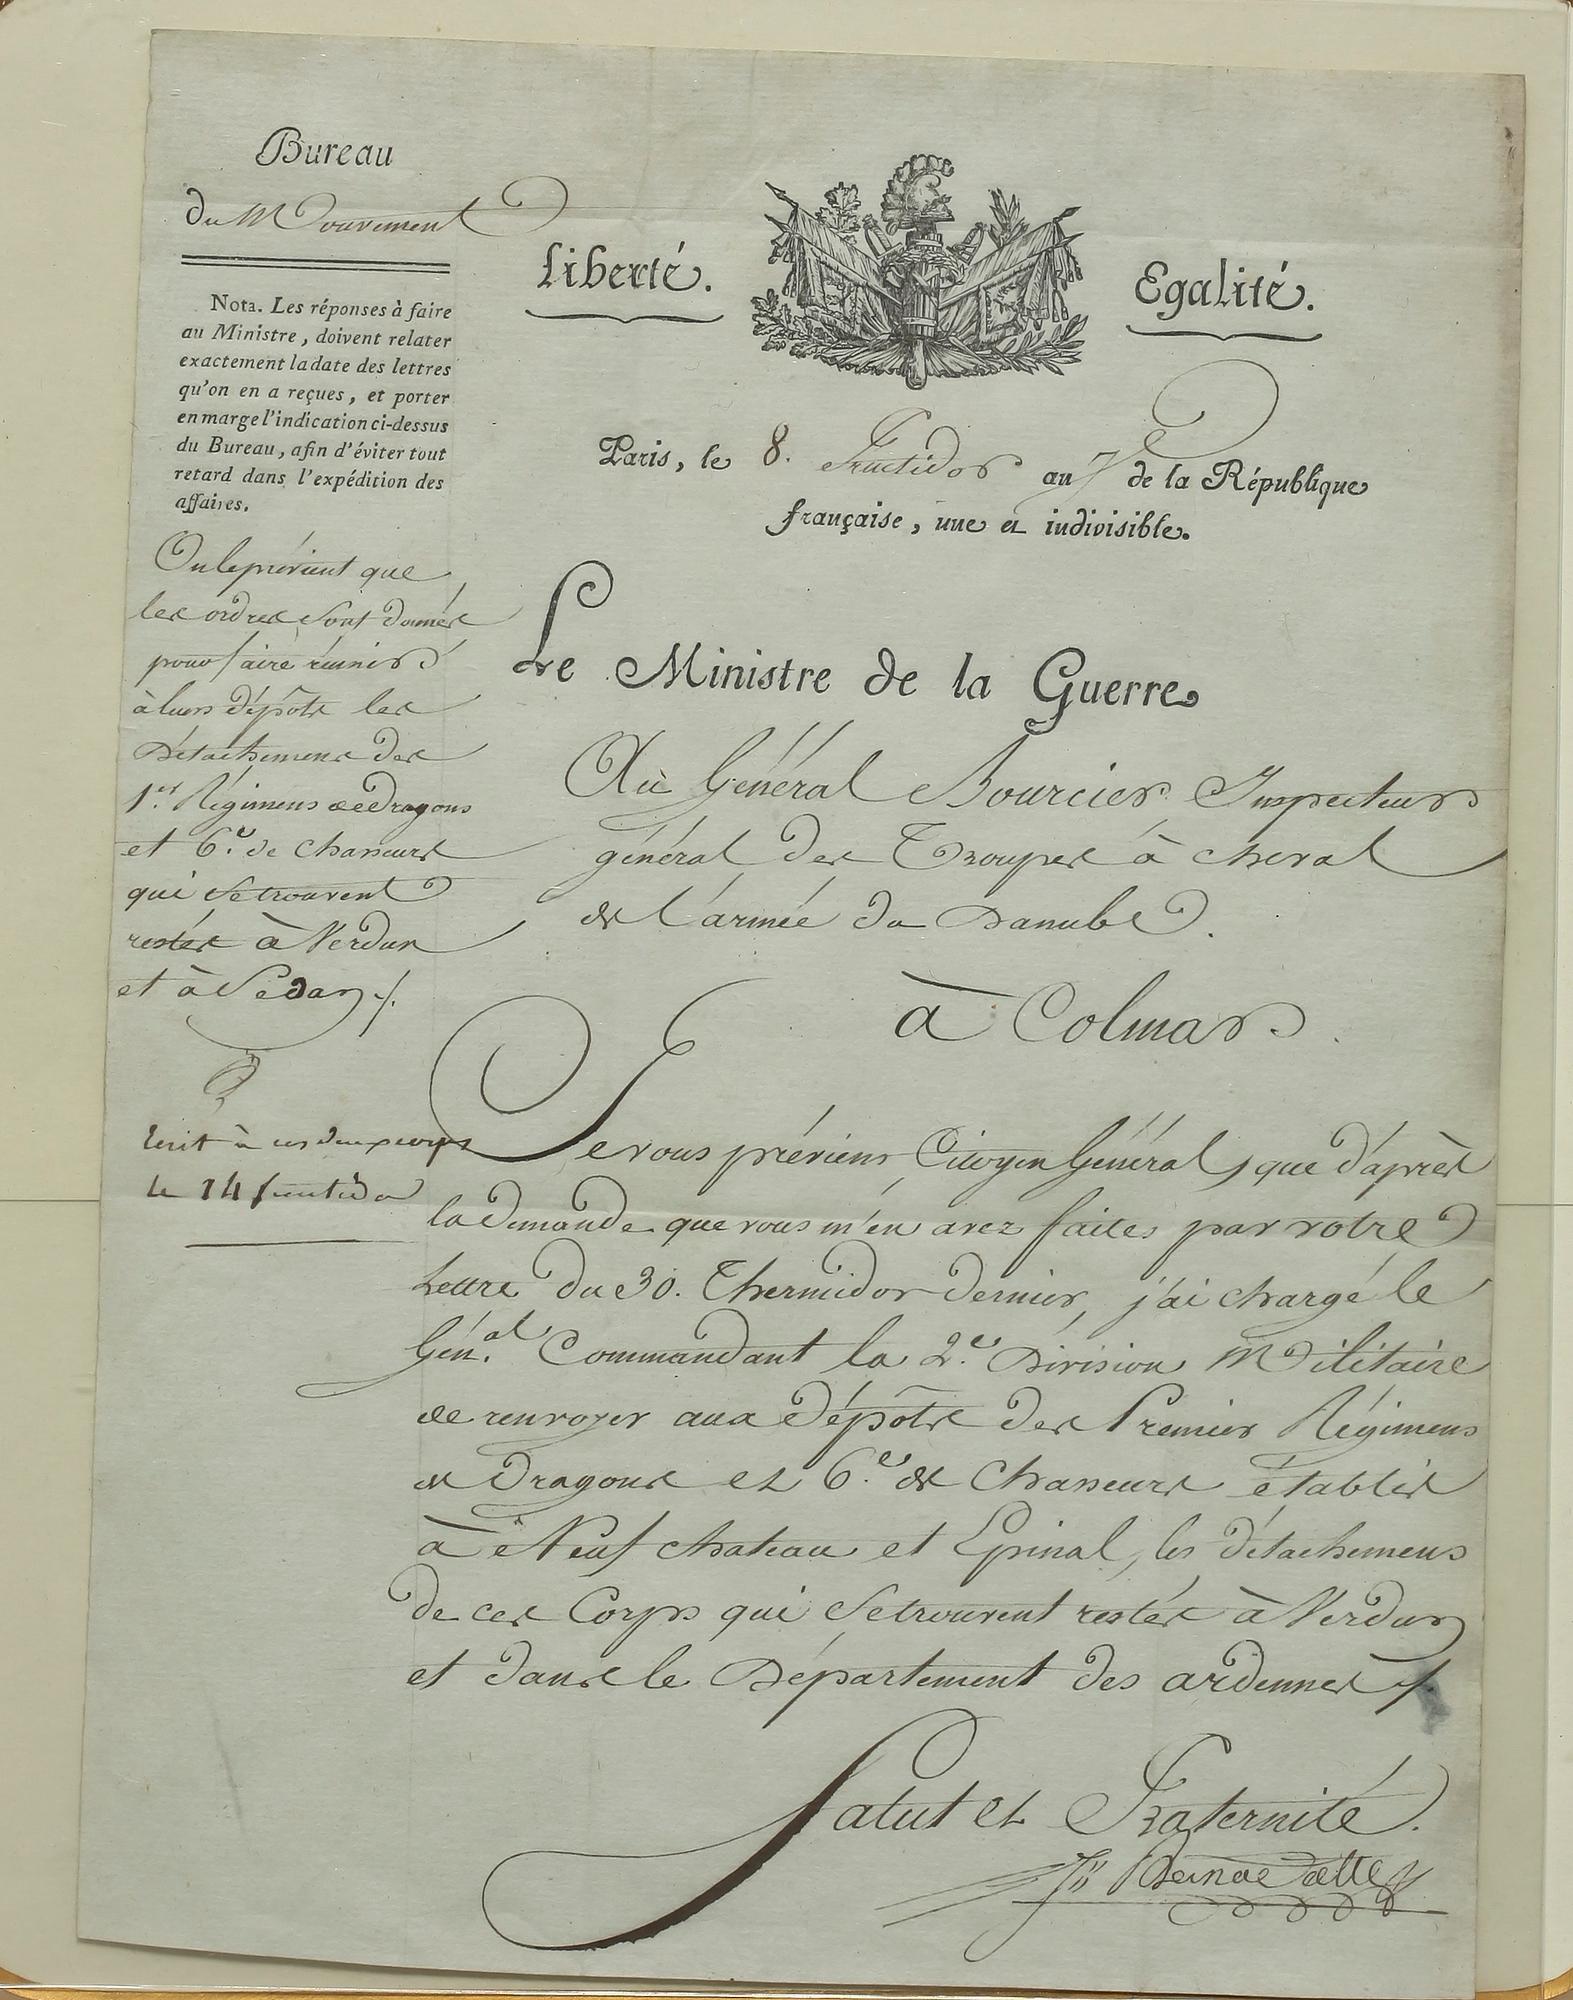 Bureau
du Mouvement
Nota. Les réponses à faire
au Ministre, doivent relater
exactement la date des lettres
qu'on en a reçues, et porter
en marge l'indication ci-dessus
du Bureau, afin d'éviter tout
retard dans l'expédition des
affaires.
On le prévient que
les ordres sont donnés
pour faire réunir
à leurs dépôts les
Détachemens des
1.er Régimens de Dragons
et 6.e de Chasseurs
qui se trouvent
restés à Verdun
et à Sedan ./.
Ecrit à ces deux corps
le 14 fructidor
Liberté.
Egalité.
Paris, le 8. Fructidor an 7 de la République
française, une et indivisible.
Le Ministre de la Guerre
Au Général Bourcier Inspecteur
général des Troupes à cheval
de l'armée du Danube.
à Colmar.
Je vous préviens, Citoyen Général, que d'après
la demande que vous m'en avez faites par votre
Lettre du 30. Thermidor dernier, j'ai chargé le
Gén.al Commandant la 2.e Division Militaire
de renvoyer aux dépôts des Premier Régimens
de Dragons et 6.e de Chasseurs établis
à Neufchateau et Epinal, les détachemens
de ces Corps qui se trouvent restés à Verdun
et dans le Département des ardennes ./.
Salut et Fraternité.
J. Bernadotte